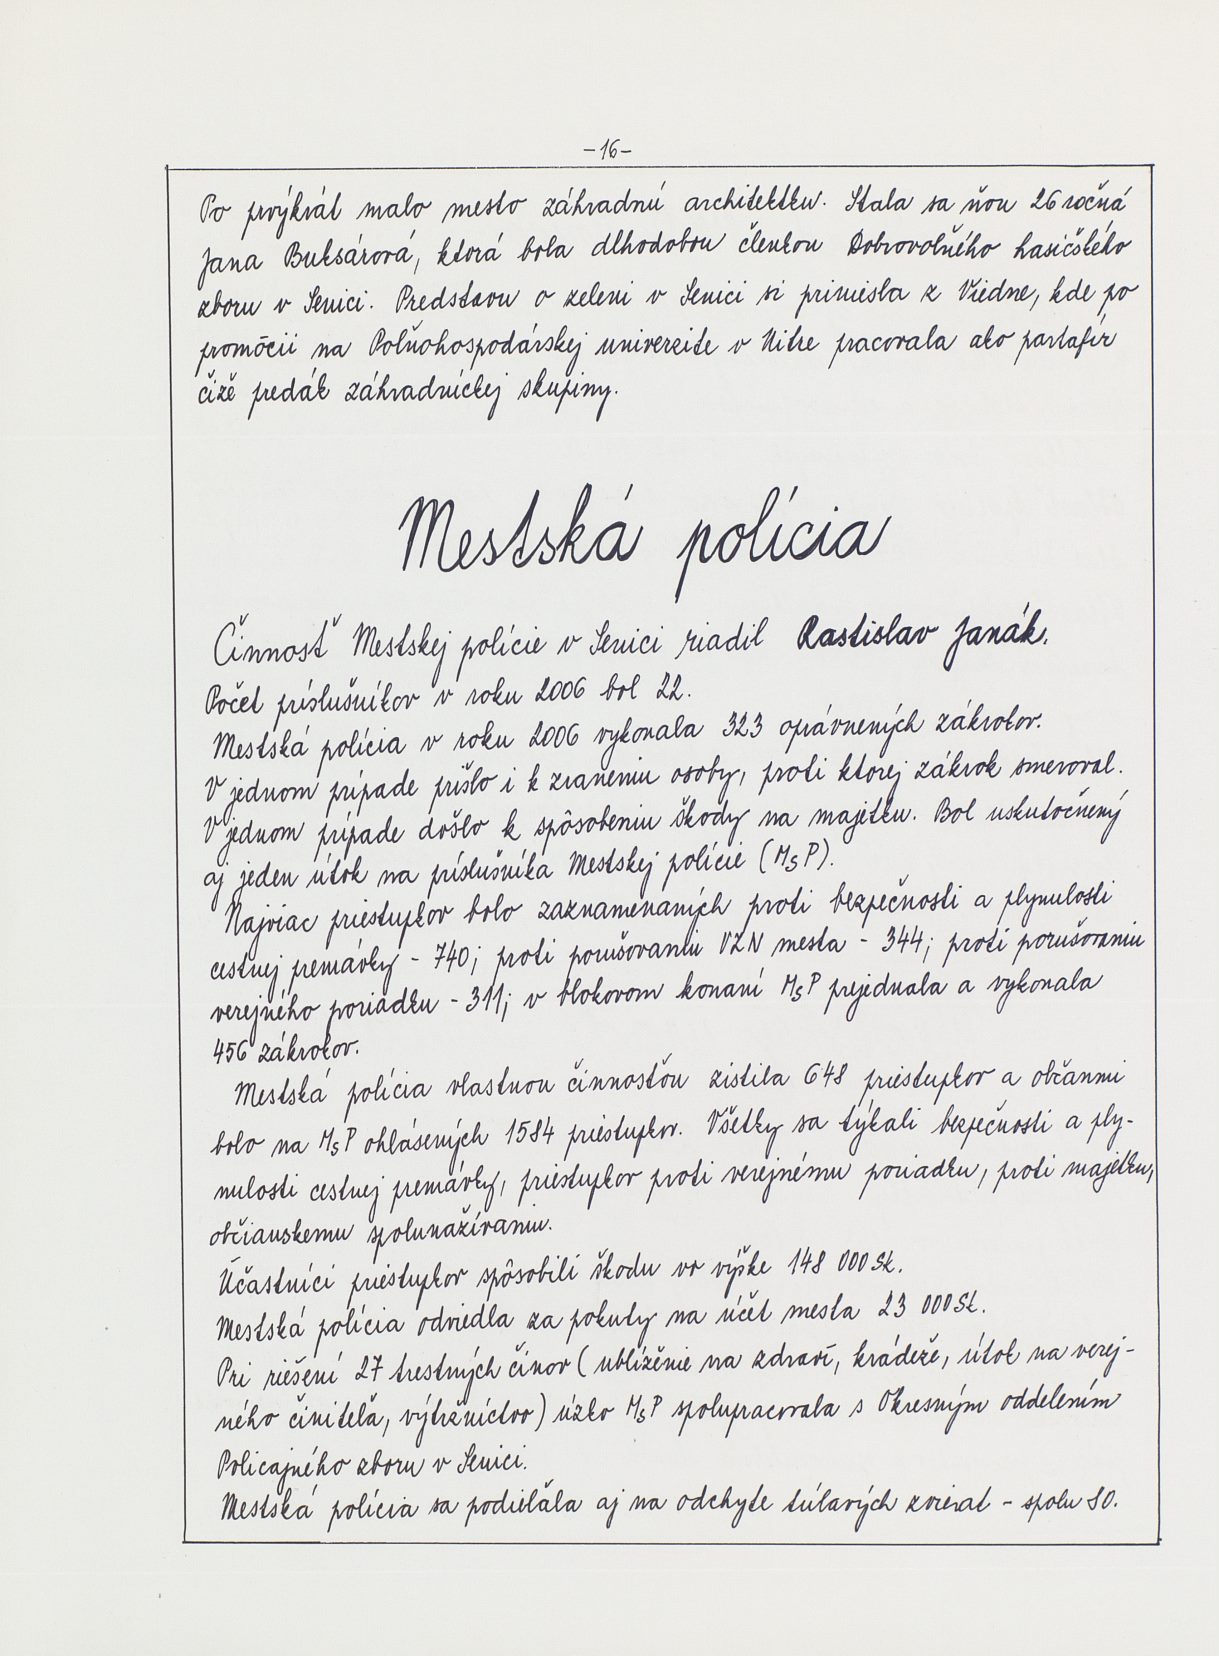 -16-
Po prvýkrát malo mesto záhradnú architektku. Stala sa ňou 26 ročná
Jana Buksárová, ktorá bola dlhodobou členkou Dobrovoľného hasičského
zboru v Senici. Predstavu o zeleni v Senici si priniesla z Viedne, kde po
promócii na Poľnohospodárskej univerzite v Nitre pracovala ako partafír
čiže predák záhradníckej skupiny.
Mestská polícia
Činnosť Mestskej polície v Senici riadil Rastislav Janák.
Počet príslušníkov v roku 2006 bol 22.
Mestská polícia v roku 2006 vykonala 323 oprávnených zákrokov.
V jednom prípade prišlo i k zraneniu osoby, proti ktorej zákrok smeroval.
V jednom prípade došlo k spôsobeniu škody na majetku. Bol uskutočnený
aj jeden útok na príslušníka Mestskej polície (MsP).
Najviac priestupkov bolo zaznamenaných proti bezpečnosti a plynulosti
cestnej premávky - 740; proti porušovaniu VZN mesta - 344; proti porušovaniu
verejného poriadku - 311; v blokovom konaní MsP prejednala a vykonala
456 zákrokov.
Mestská polícia vlastnou činnosťou zistila 648 priestupkov a občanmi
bolo na MsP ohlásených 1584 priestupkov. Všetky sa týkali bezpečnosti a ply-
nulosti cestnej premávky, priestupkov proti verejnému poriadku, proti majetku,
občianskemu spolunažívaniu.
Účastníci priestupkov spôsobili škodu vo výške 148 000 Sk.
Mestská polícia odviedla za pokuty na účet mesta 23 000 Sk.
Pri riešení 27 trestných činov (ublíženie na zdraví, krádeže, útok na verej-
ného činiteľa, výtržníctvo) úzko MsP spolupracovala s Okresným oddelením
Policajného zboru v Senici.
Mestská polícia sa podieľala aj na odchyte túlavých zvierat - spolu 80.